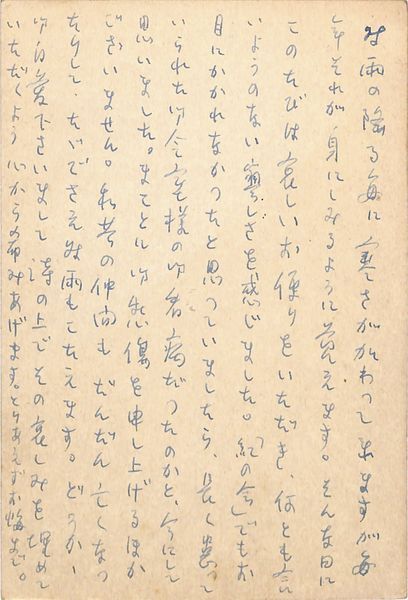 時雨の降る毎に寒さがかわって来ますが毎
年それが身にしみるように覚えます。そんな日に
このたびは哀しいお便りをいただき、何とも言
いようのない寂しさを感じました。「紅の会」でもお
目にかかれなかったと思っていましたら、長く患って
いられた御令室様の御看病だったのかと、今にして
思いました。まことに御愁傷を申し上げるほか
ございません。私共の仲間もだんだん亡くなっ
たりして、たゞでさえ時雨もこたえます。どうか
御自愛下さいまして詩の上でその哀しみを埋めて
いただくよう心からお頼みあげます。とりあえずお悔まで。